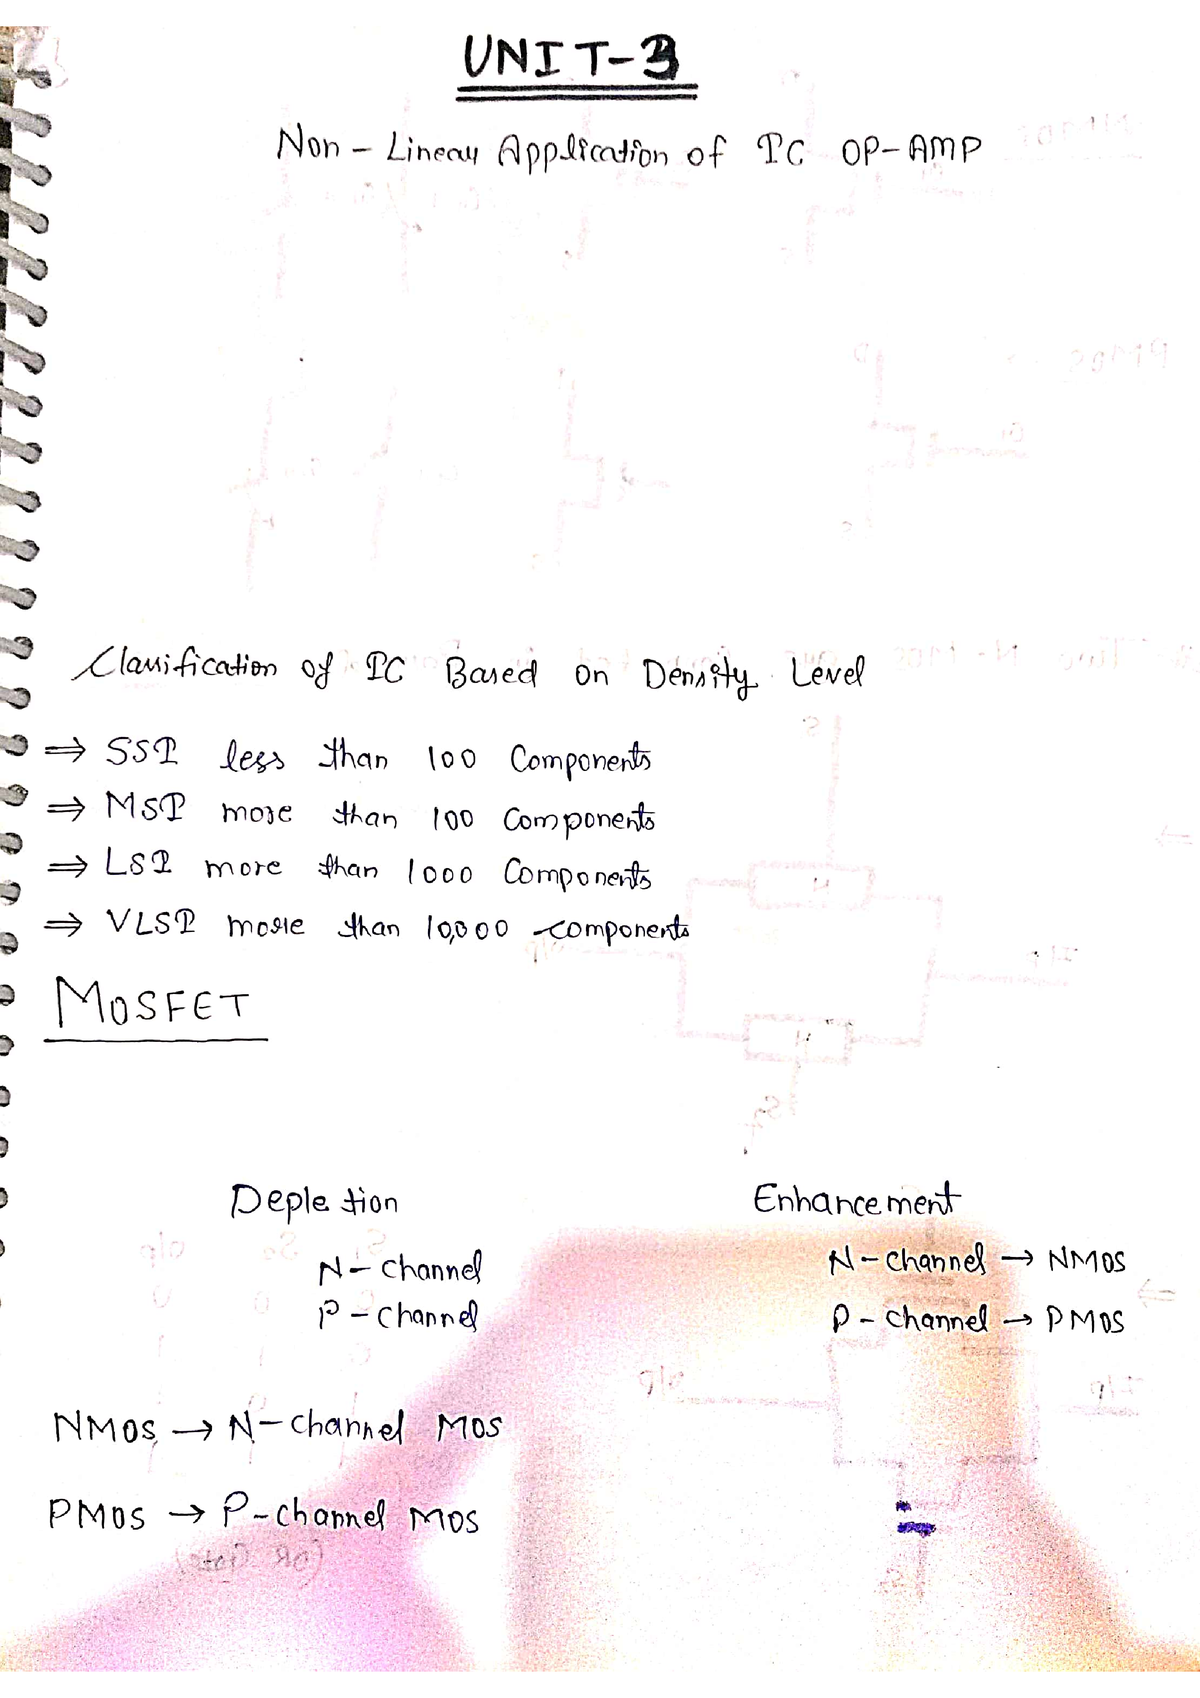 UNIT-3
Non-Linear Application of IC OP-AMP
Classification of IC Based on Density Level
⇒ SSI less than 100 Components
⇒ MSI more than 100 Components
⇒ LSI more than 1000 Components
⇒ VLSI more than 10,000 components
MOSFET
Depletion
N-channel
P-channel
Enhancement
N-channel → NMOS
P-channel → PMOS
NMOS → N-channel MOS
PMOS → P-channel MOS